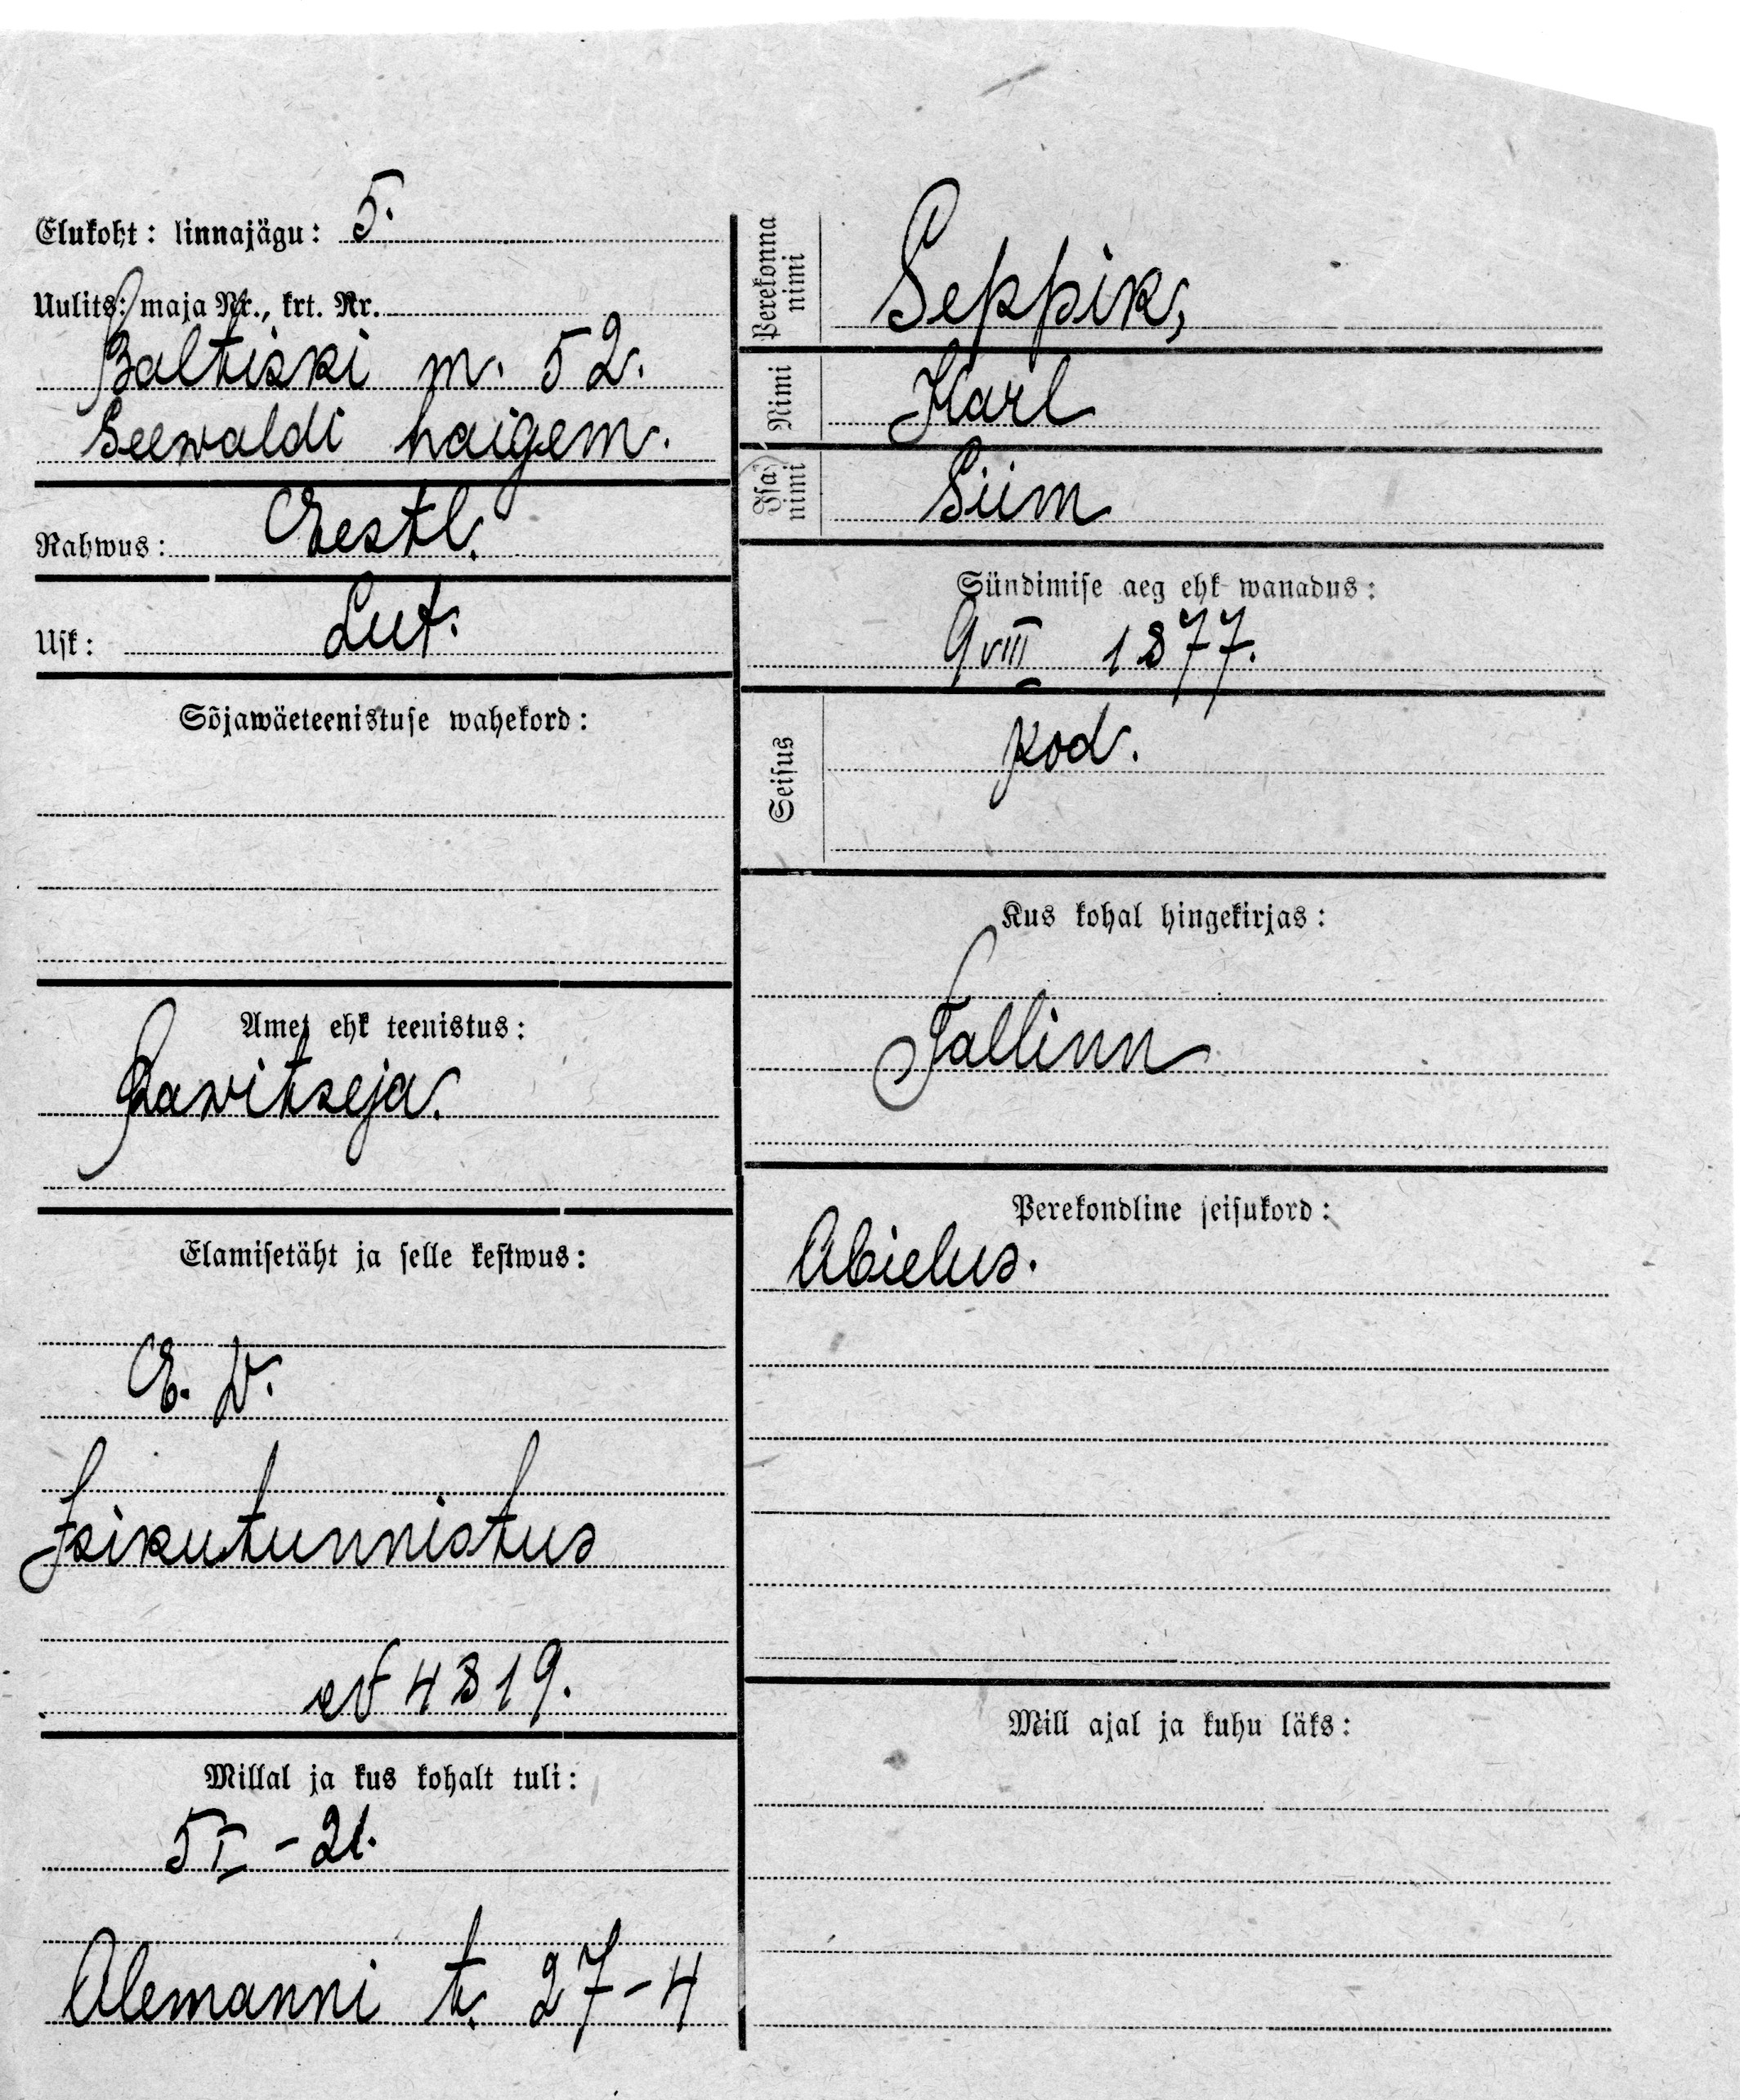 Elukoht: linnajägu: 5.
Uulits: maja Nr., krt. Nr.
Baltiski m. 52.
Seewaldi haigem.
Rahwus: Eestl.
Usk: Lut.
Sõjawäeteenistuse wahekord:
Amet ehk teenistus:
Rawitseja.
Elamisetäht ja selle kestwus:
E. W.
Isikutunnistus
№ 4819.
Millal ja kus kohalt tuli:
5 I - 21.
Alemanni t. 27-4
Perekonna nimi Seppik,
Nimi Karl
Isa nimi Siim
Sündimise aeg ehk wanadus:
9 VIII 1877.
Seisus kod.
Kus kohal hingekirjas:
Tallinn
Perekondline seisukord:
Abielus.
Mill ajal ja kuhu läks: